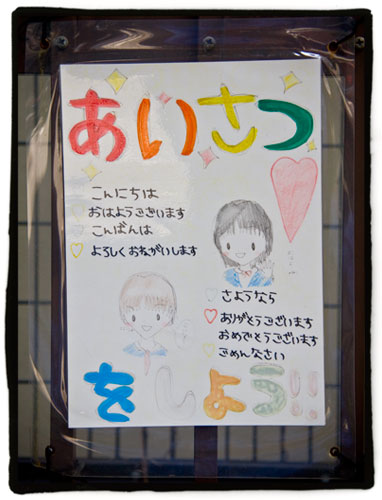 あいさつ
こんにちは
おはようございます
こんばんは
よろしくおねがいします
さようなら
ありがとうございます
おめでとうございます
ごめんなさい
をしよう!!